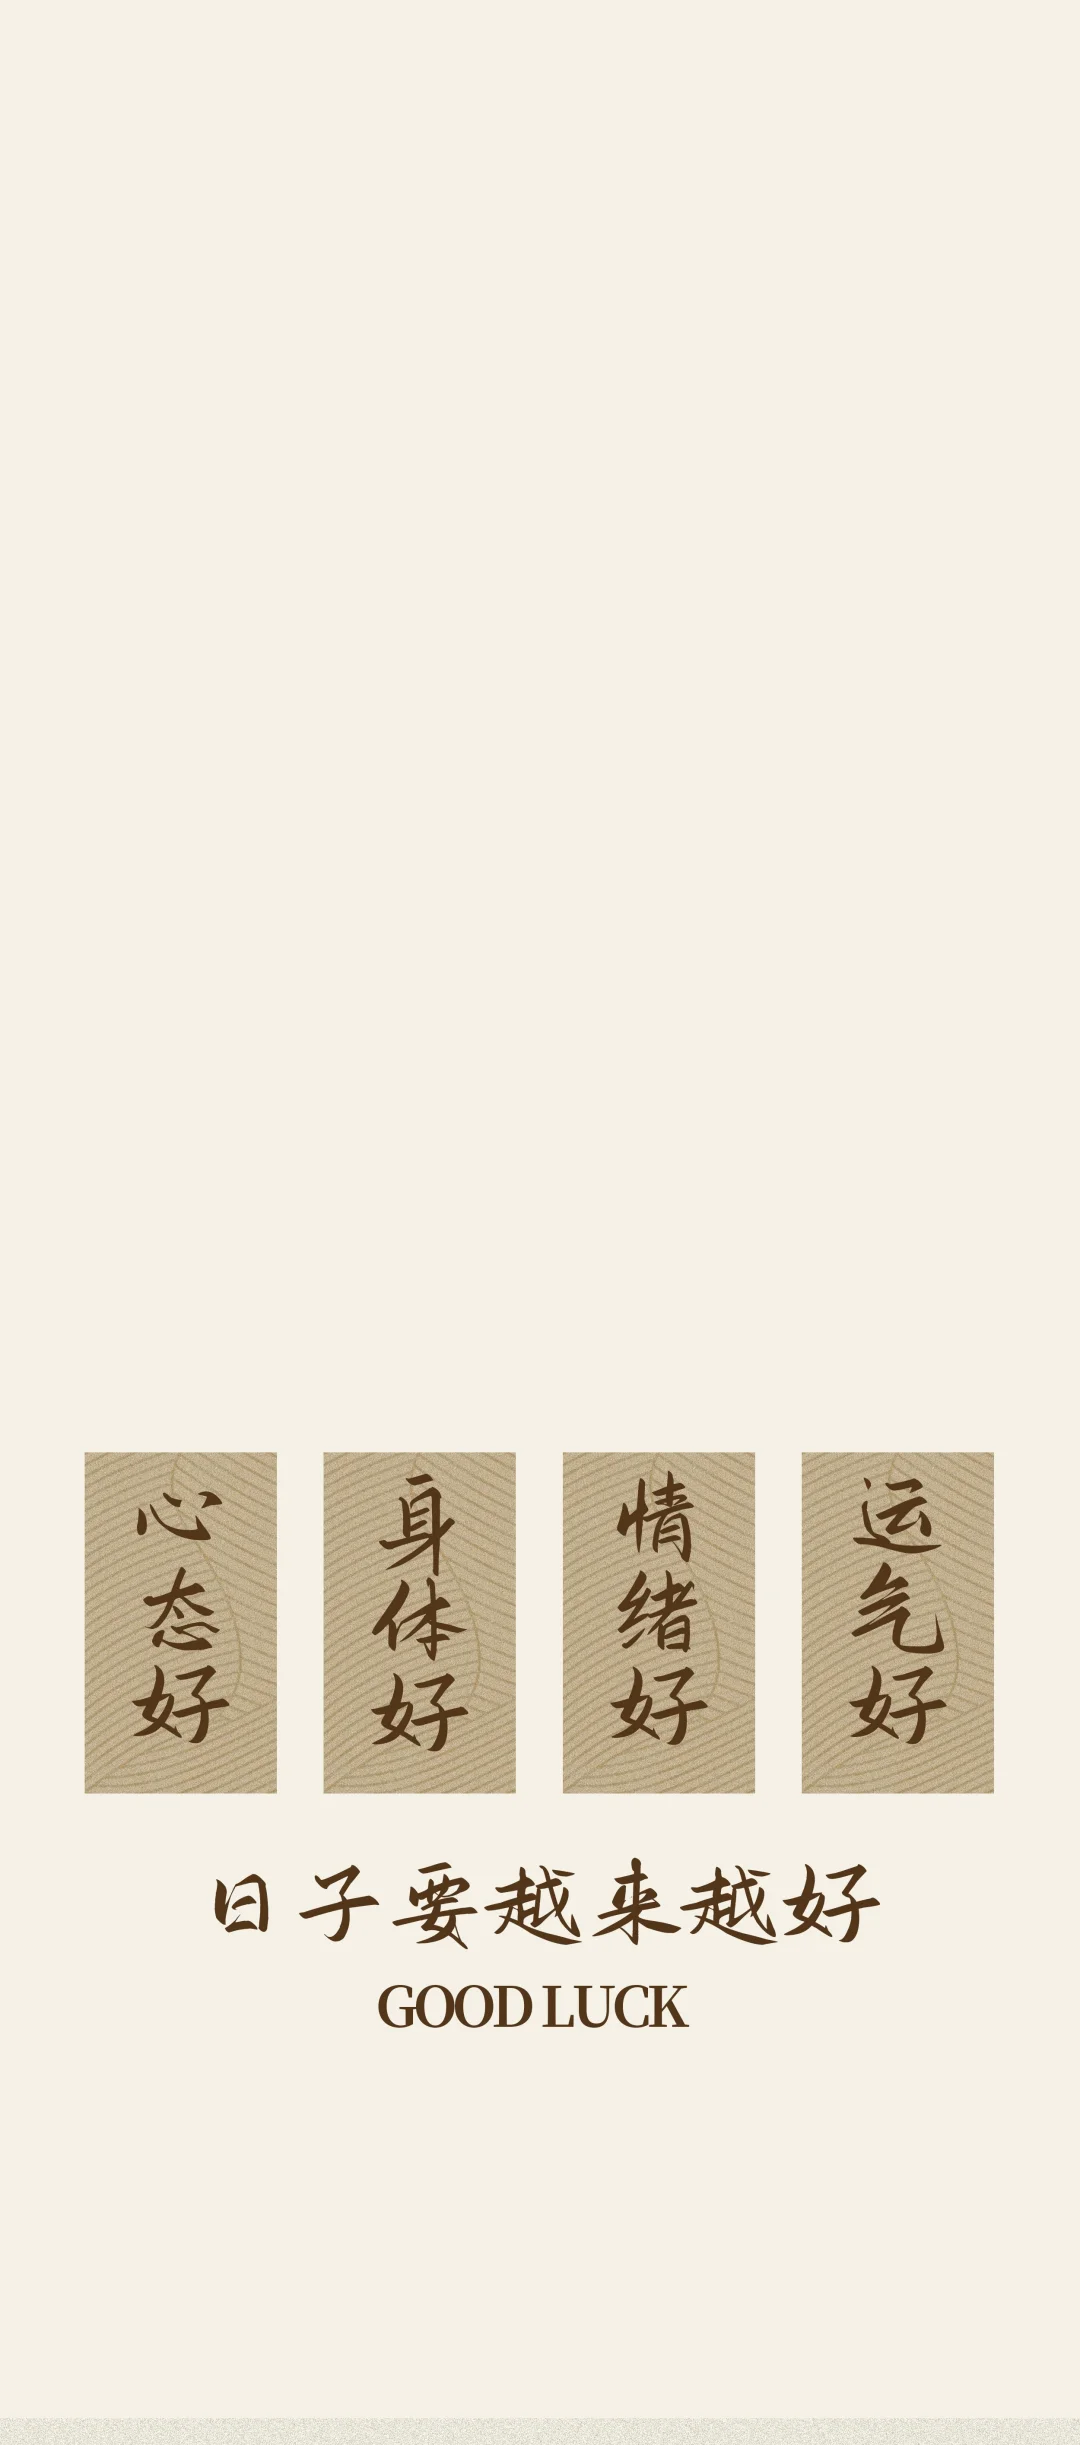 心态好
身体好
情绪好
运气好
日子要越来越好
GOOD LUCK